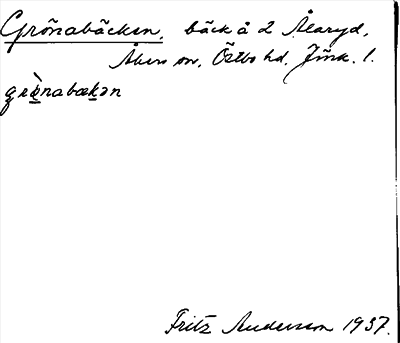 Grönabäcken, bäck å 2 Ålaryd,
Åkers sn, Östbo hd. Jönk. l.
grø̀nabækən
Fritz Anderson 1937.